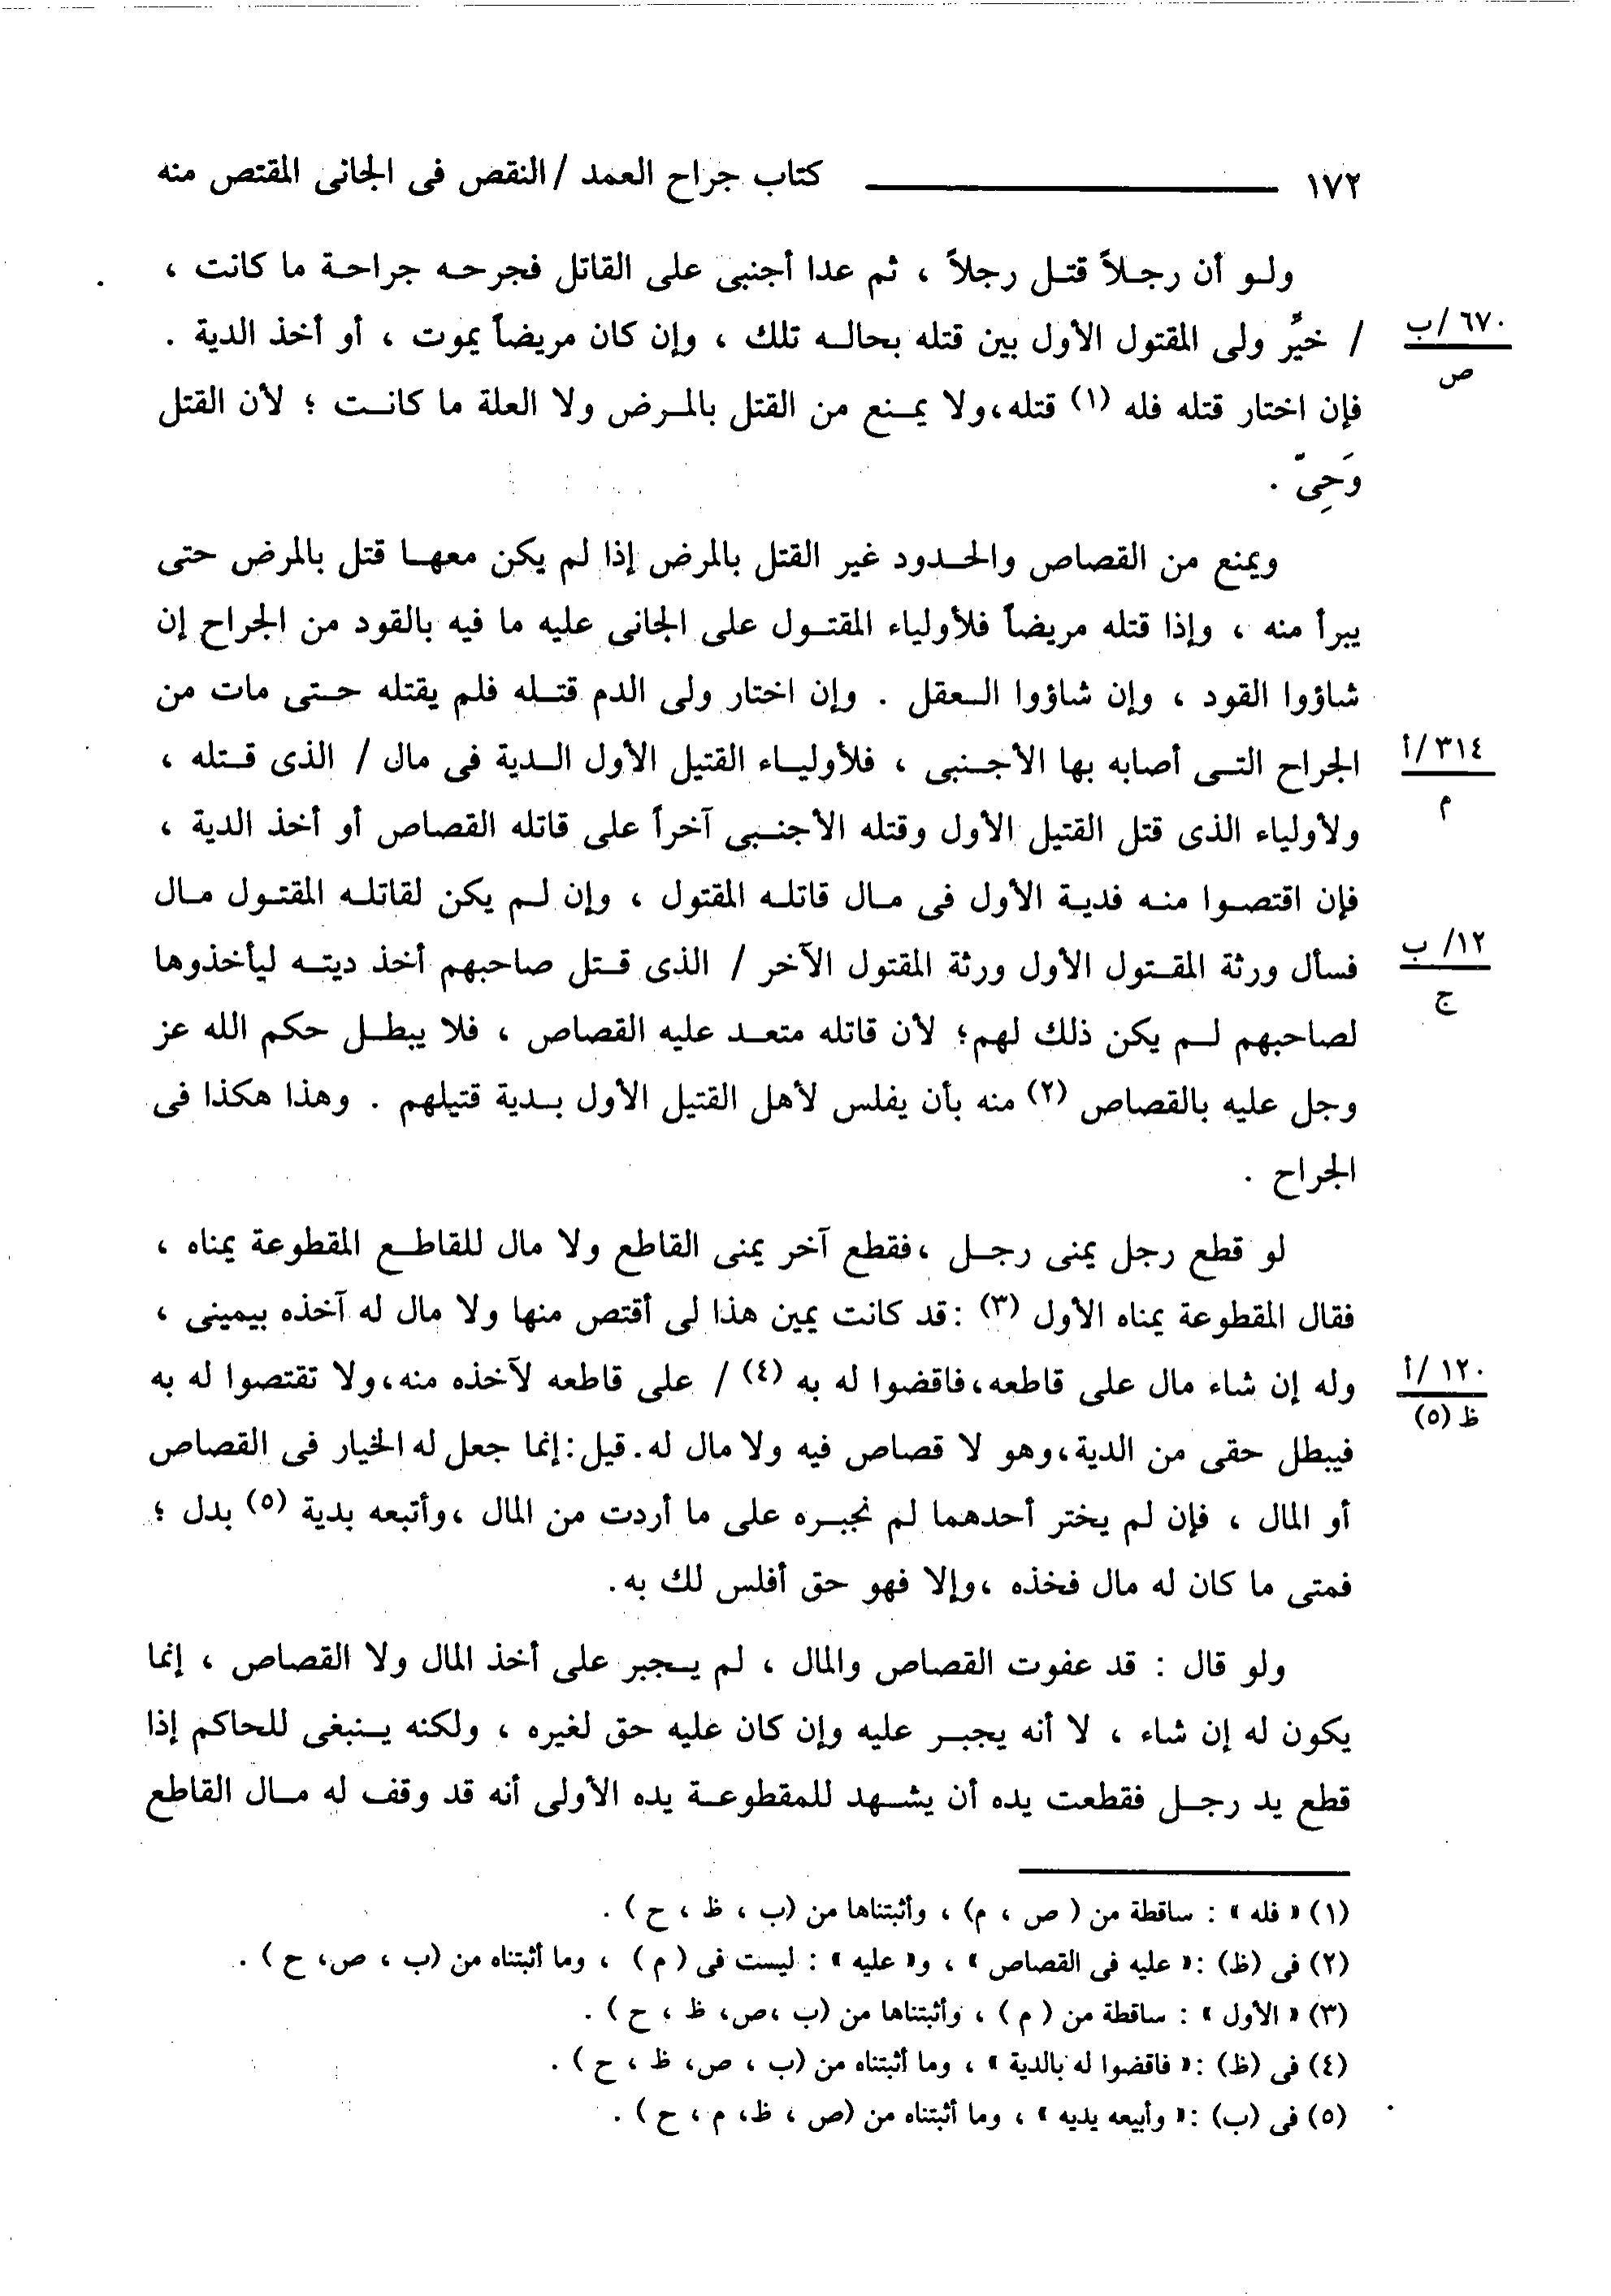 ١٧٢ ـــــــــــــ كتاب جراح العمد / النقص فى الجانى المقتص منه
ولو أن رجلاً قتل رجلاً ، ثم عدا أجنبى على القاتل فجرحه جراحة ما كانت ،
/ خيَّر ولى المقتول الأول بين قتله بحاله تلك ، وإن كان مريضاً يموت ، أو أخذ الدية .
٦٧٠/ب
ص
فإن اختار قتله فله (١) قتله، ولا يمنع من القتل بالمرض ولا العلة ما كانت ؛ لأن القتل
وَحِىّ .
ويمنع من القصاص والحدود غير القتل بالمرض إذا لم يكن معها قتل بالمرض حتى
يبرأ منه ، وإذا قتله مريضاً فلأولياء المقتول على الجانى عليه ما فيه بالقود من الجراح إن
شاؤوا القود ، وإن شاؤوا العقل . وإن اختار ولى الدم قتله فلم يقتله حتى مات من
الجراح التى أصابه بها الأجنبى ، فلأولياء القتيل الأول الدية فى مال / الذى قتله ،
٣١٤/أ
م
ولأولياء الذى قتل القتيل الأول وقتله الأجنبى آخراً على قاتله القصاص أو أخذ الدية ،
فإن اقتصوا منه فدية الأول فى مال قاتله المقتول ، وإن لم يكن لقاتله المقتول مال
فسأل ورثة المقتول الأول ورثة المقتول الآخر / الذى قتل صاحبهم أخذ ديته ليأخذوها
١٢/ب
ج
لصاحبهم لم يكن ذلك لهم؛ لأن قاتله متعد عليه القصاص ، فلا يبطل حكم الله عز
وجل عليه بالقصاص (٢) منه بأن يفلس لأهل القتيل الأول بدية قتيلهم . وهذا هكذا فى
الجراح .
لو قطع رجل يمنى رجل ، فقطع آخر يمنى القاطع ولا مال للقاطع المقطوعة يمناه ،
فقال المقطوعة يمناه الأول (٣) : قد كانت يمين هذا لى أقتص منها ولا مال له آخذه بيمينى ،
وله إن شاء مال على قاطعه، فاقضوا له به (٤) / على قاطعه لآخذه منه، ولا تقتصوا له به
١٢٠/أ
ظ (٥)
فيبطل حقى من الدية، وهو لا قصاص فيه ولا مال له. قيل: إنما جعل له الخيار فى القصاص
أو المال ، فإن لم يختر أحدهما لم نجبره على ما أردت من المال ، وأتبعه بدية (٥) بدل ؛
فمتى ما كان له مال فخذه ، وإلا فهو حق أفلس لك به.
ولو قال : قد عفوت القصاص والمال ، لم يجبر على أخذ المال ولا القصاص ، إنما
يكون له إن شاء ، لا أنه يجبر عليه وإن كان عليه حق لغيره ، ولكنه ينبغى للحاكم إذا
قطع يد رجل فقطعت يده أن يشهد للمقطوعة يده الأولى أنه قد وقف له مال القاطع
(١) « فله » : ساقطة من ( ص ، م) ، وأثبتناها من (ب ، ظ ، ح ) .
(٢) فى (ظ) : « عليه فى القصاص » ، و« عليه » : ليست فى ( م ) ، وما أثبتناه من (ب ، ص، ح ) .
(٣) « الأول » : ساقطة من ( م ) ، وأثبتناها من (ب ،ص، ظ ، ح ) .
(٤) فى (ظ) : « فاقضوا له بالدية » ، وما أثبتناه من (ب ، ص، ظ ، ح ) .
(٥) فى (ب) : « وأبيعه يديه » ، وما أثبتناه من (ص ، ظ، م ، ح ) .